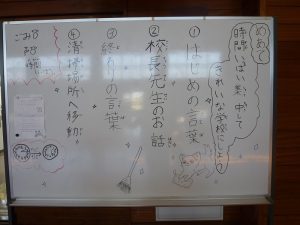 めあて
時間いっぱい集中して
きれいな学校にしよう
①はじめの言葉
②校長先生のお話
③終りの言葉
④清掃場所へ移動